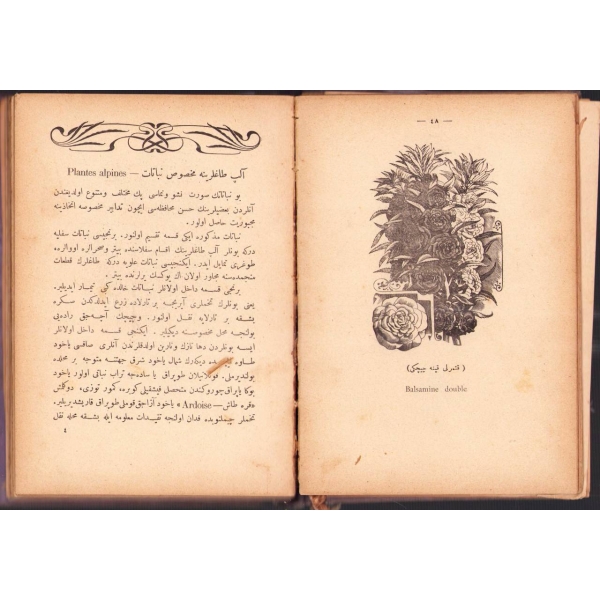 — ٤٨ —
( قتمرلی قینه چیچکی )
Balsamine double.
آلپ طاغلرینه مخصوص نباتات — Plantes alpines
بو نباتاتك صورت نشو و نماسی پك مختلف و متنوع اولدیغندن
آنلردن بعضیلرینك حسن محافظه‌سی ایچون تدابیر مخصوصه اتخاذینه
مجبوریت حاصل اولور.
نباتات مذكوره ایكی قسمه تقسیم اولنور. برنجیسی نباتات سفلیه
دركه بونلر آلپ طاغلرینك اقسام سفلاسنده بیتر و صحرالره اووالره
طوغری تمایل ایدر. ایكنجیسی نباتات علویه دركه طاغلرك قطعات
منجمده‌سنه مجاور اولان اك یوكسك یرلرنده بیتر.
برنجی قسمه داخل اولانلر نباتات عاده كبی تیمار ایدیلیر.
یعنی بونلرك تخملری آیریجه بر تارلاده زرع ایدلدكدن صكره
بشقه بر تارلایه نقل اولنور. و چیچك آچه‌جق راده‌یی
بولنجه محل مخصوصنه دیكیلیر. ایكنجی قسمه داخل اولانلر
ایسه بونلردن دها نازك و نارین اولدقلرندن آنلری صاقسی یاخود
طاوه‌لر ایچنده دیكه‌رك شمال یاخود شرق جهتنه متوجه بر محلده
بولندیرملی. قوللانیلان طوپراق یا ساده‌جه تراب نباتی اولور یاخود
یوكا یاپراق چوروكندن متحصل فیشقیلی كوبره، كمور توزی، دوكلمش
«قره طاش — Ardoise» یاخود آزاجق قوملی طوپراق قاریشدیریلیر.
تخملر چیملنوبده فدان اولنجه تقیدات معلومه ایله بشقه محله نقل
٤